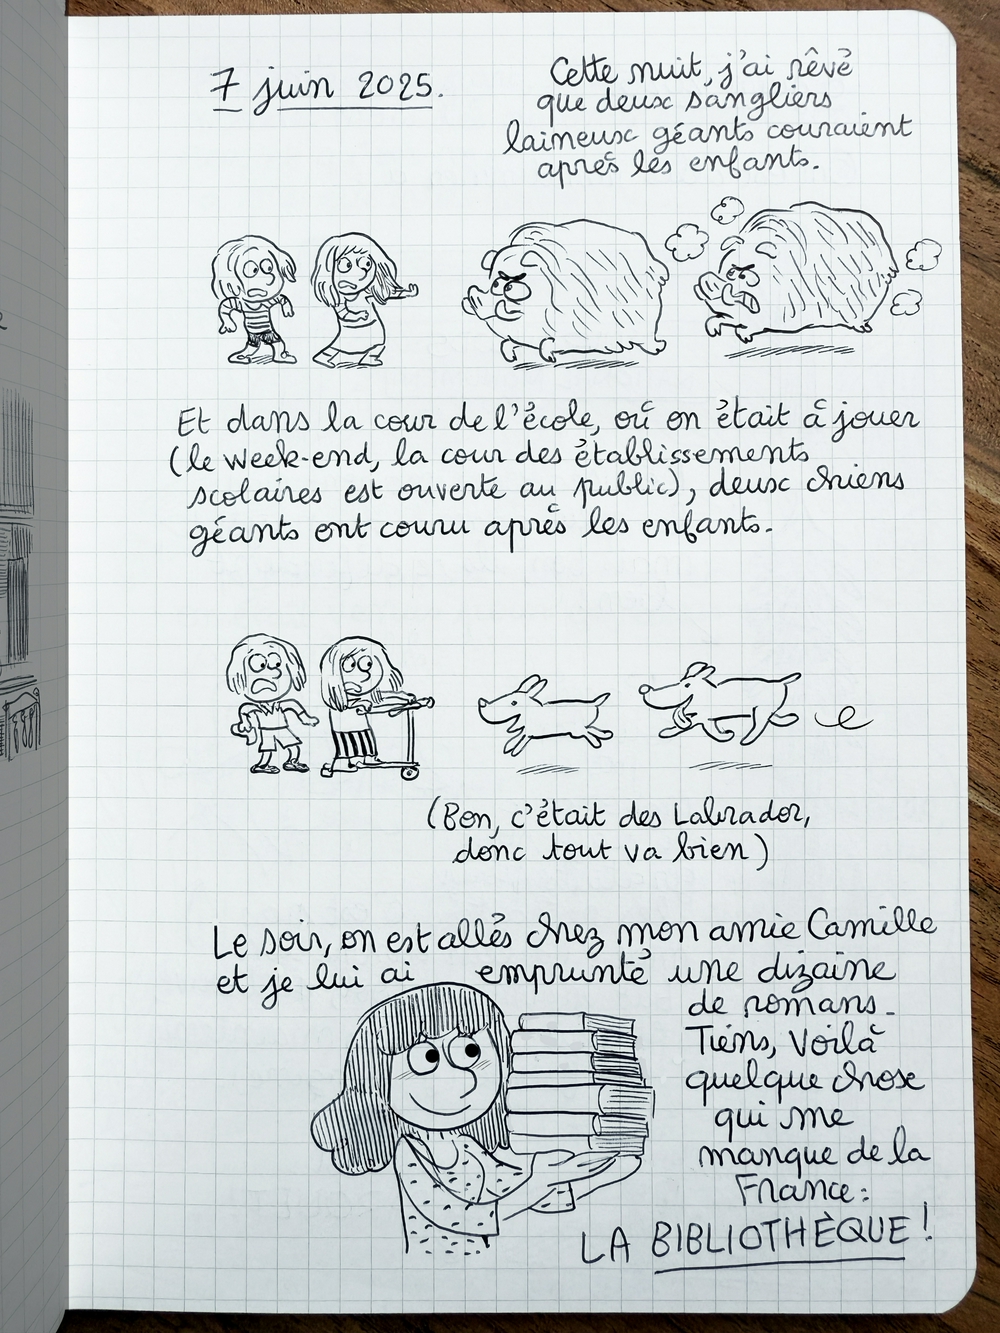 7 juin 2025.
Cette nuit, j'ai rêvé
que deux sangliers
laineux géants couraient
après les enfants.
Et dans la cour de l'école, où on était à jouer
(le week-end, la cour des établissements
scolaires est ouverte au public), deux chiens
géants ont couru après les enfants.
(Bon, c'était des Labrador,
donc tout va bien)
Le soir, on est allés chez mon amie Camille
et je lui ai emprunté une dizaine
de romans.
Tiens, voilà
quelque chose
qui me
manque de la
France :
LA BIBLIOTHÈQUE !